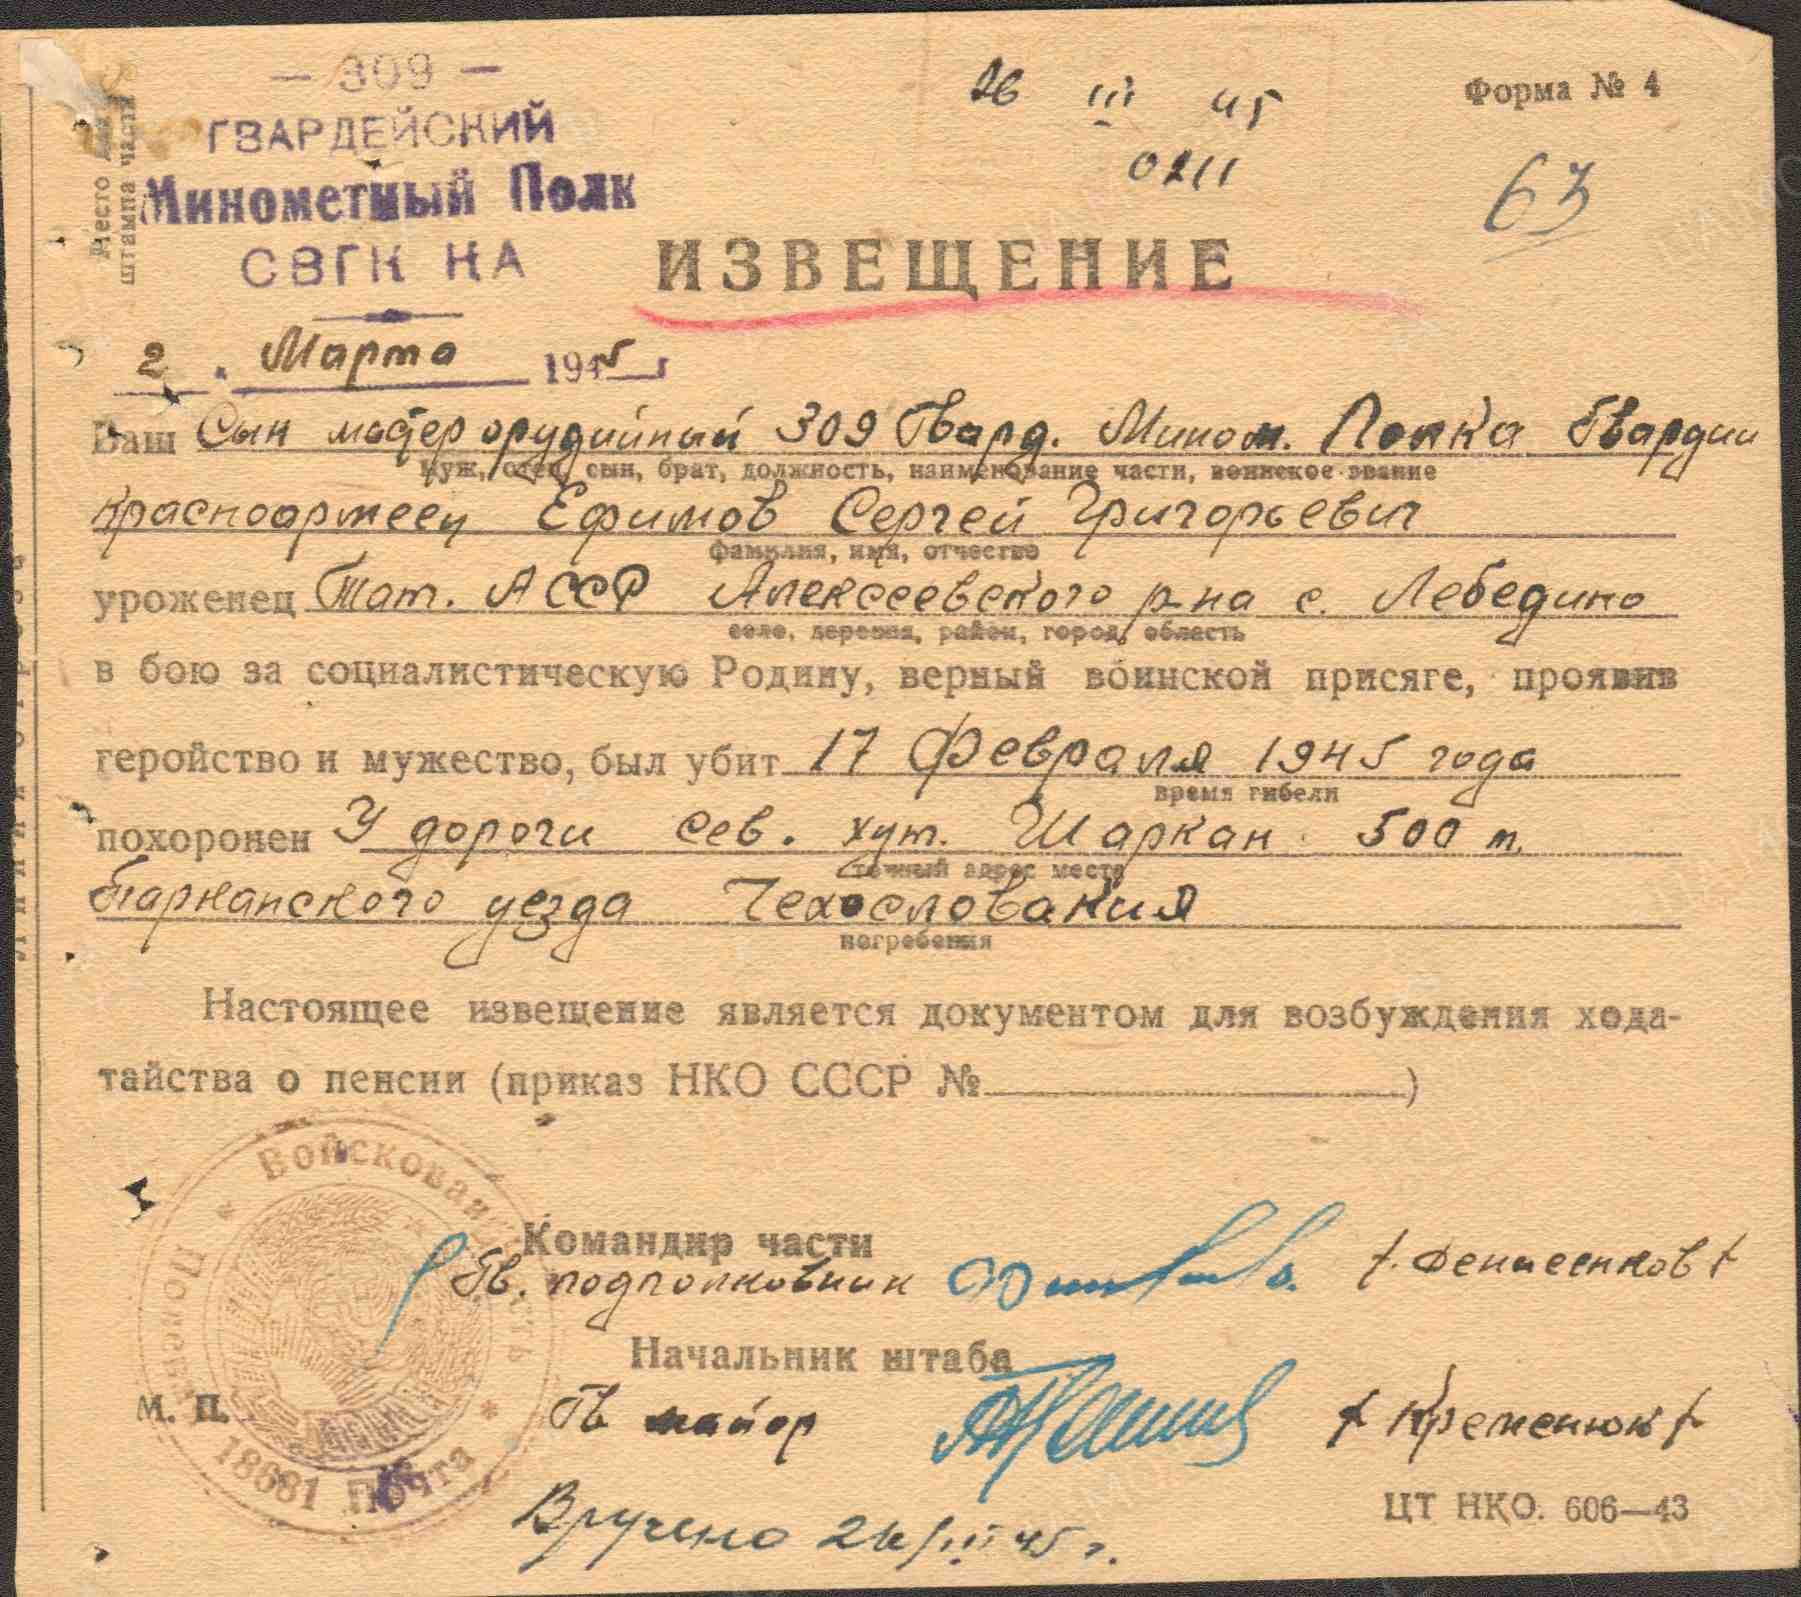 — 309 —
ГВАРДЕЙСКИЙ
Минометный Полк
СВГК КА
Место для
штампа части
26 III 45
0211
Форма № 4
63
ИЗВЕЩЕНИЕ
2 . Марта 1945 г
Ваш Сын мастер орудийный 309 Гвард. Мином. Полка Гвардии
муж, отец, сын, брат, должность, наименование части, воинское звание
красноармеец Ефимов Сергей Григорьевич
фамилия, имя, отчество
уроженец Тат. АССР Алексеевского р-на с. Лебедино
село, деревня, район, город, область
в бою за социалистическую Родину, верный воинской присяге, проявив
геройство и мужество, был убит 17 февраля 1945 года
время гибели
похоронен У дороги сев. хут. Шаркан 500 м.
точный адрес места
Парканского уезда Чехословакия
погребения
Настоящее извещение является документом для возбуждения хода-
тайства о пенсии (приказ НКО СССР № )
Войсковая часть
Полевая
Почта
18681
Командир части
Гв. подполковник
Начальник штаба
Гв майор
/ Кременюк /
М. П.
Вручено 26/III 45 г.
ЦТ НКО. 606—43